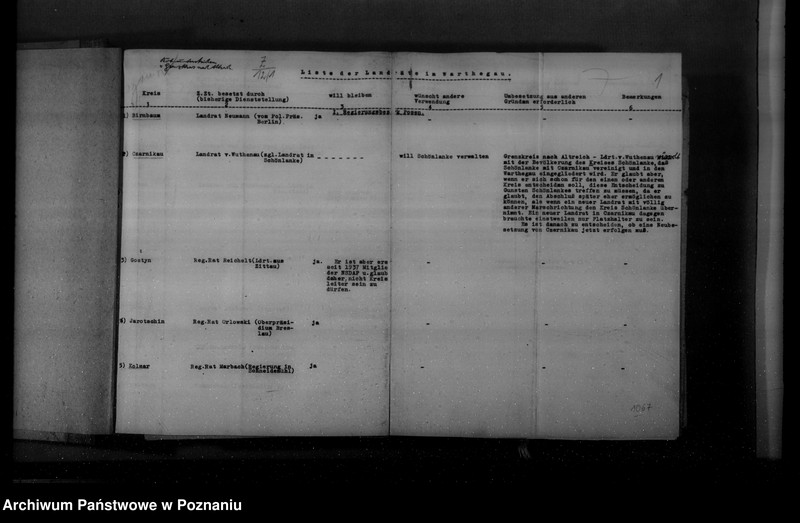 7
12/1
7
1
Liste der Landräte im Warthegau.
Kreis
z.Zt. besetzt durch
(bisherige Dienststellung)
will bleiben
wünscht andere
Verwendung
Umbesetzung aus anderen
Gründen erforderlich
Bemerkungen
1 2 3 4 5 6
1. Regierungsbez. Posen.
1) Birnbaum Landrat Neumann (vom Pol.Präs. ja - - -
Berlin)
2) Czarnikau Landrat v.Wuthenau (zgl.Landrat in - - - - - - -
Schönlanke)
will Schönlanke verwalten
Grenzkreis nach Altreich - Ldrt.v.Wuthenau
mit der Bevölkerung des Kreises Schönlanke, daß
Schönlanke mit Czarnikau vereinigt und in den
Warthegau eingegliedert wird. Er glaubt aber,
wenn er sich schon für den einen oder anderen
Kreis entscheiden soll, diese Entscheidung zu
Gunsten Schönlankes treffen zu müssen, da er
glaubt, den Abschluß später eher ermöglichen zu
können, als wenn ein neuer Landrat mit völlig
anderer Marschrichtung den Kreis Schönlanke über-
nimmt. Ein neuer Landrat in Czarnikau dagegen
brauchte einstweilen nur Platzhalter zu sein.
Es ist danach zu entscheiden, ob eine Neube-
setzung von Czarnikau jetzt erfolgen muß.
3) Gostyn Reg.Rat Reichelt (Ldrt.aus ja. Er ist aber ers - - -
Zittau) seit 1937 Mitglie
der NSDAP u.glaub
daher, nicht Kreis
leiter sein zu
dürfen.
4) Jarotschin Reg.Rat Orlowski (Oberpräsi- ja - - -
dium Bres-
lau)
5) Kolmar Reg.Rat Marbach (Regierung in ja - - -
Schneidemühl)
Archiwum Państwowe w Poznaniu